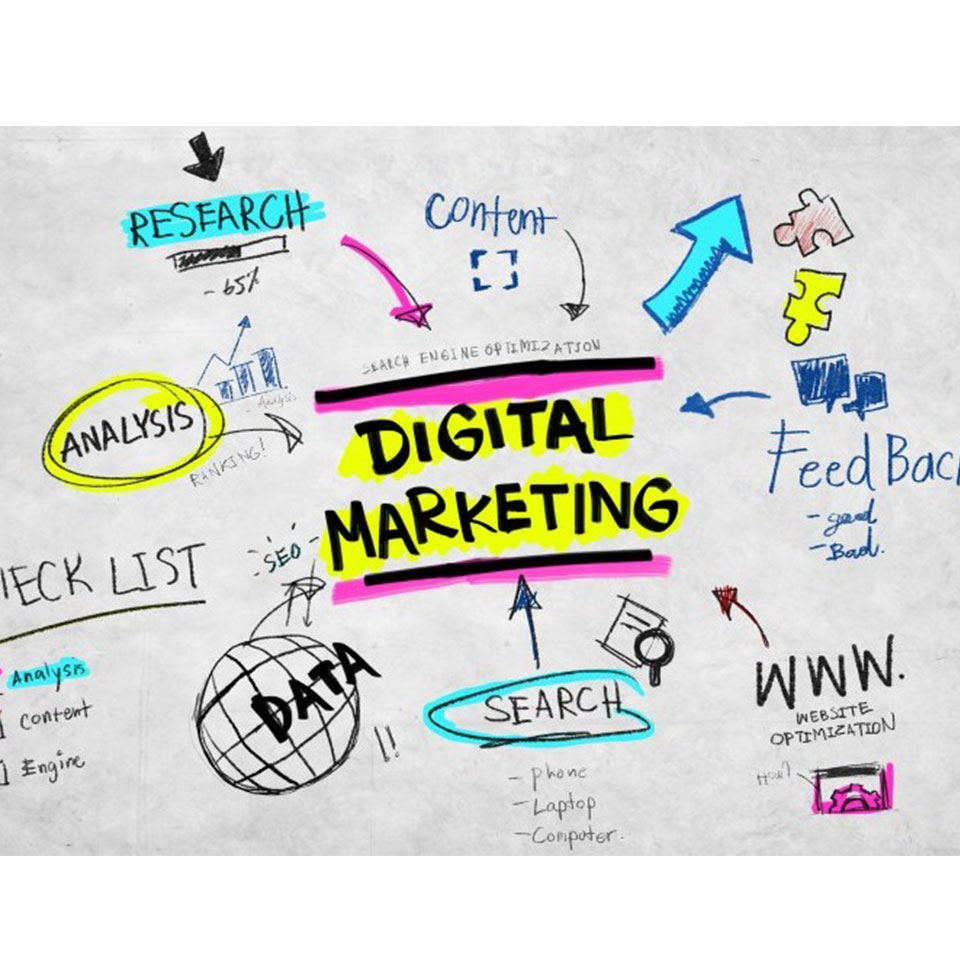 RESEARCH
- 65%
Content
SEARCH ENGINE OPTIMIZATION
DIGITAL
MARKETING
ANALYSIS
- Analysis
RANKING!
SEO
FeedBac
- good
- Bad.
HECK LIST
Analysis
Content
Engine
DATA
!!
SEARCH
- phone
- Laptop
- Computer.
WWW.
WEBSITE
OPTIMIZATION
How?